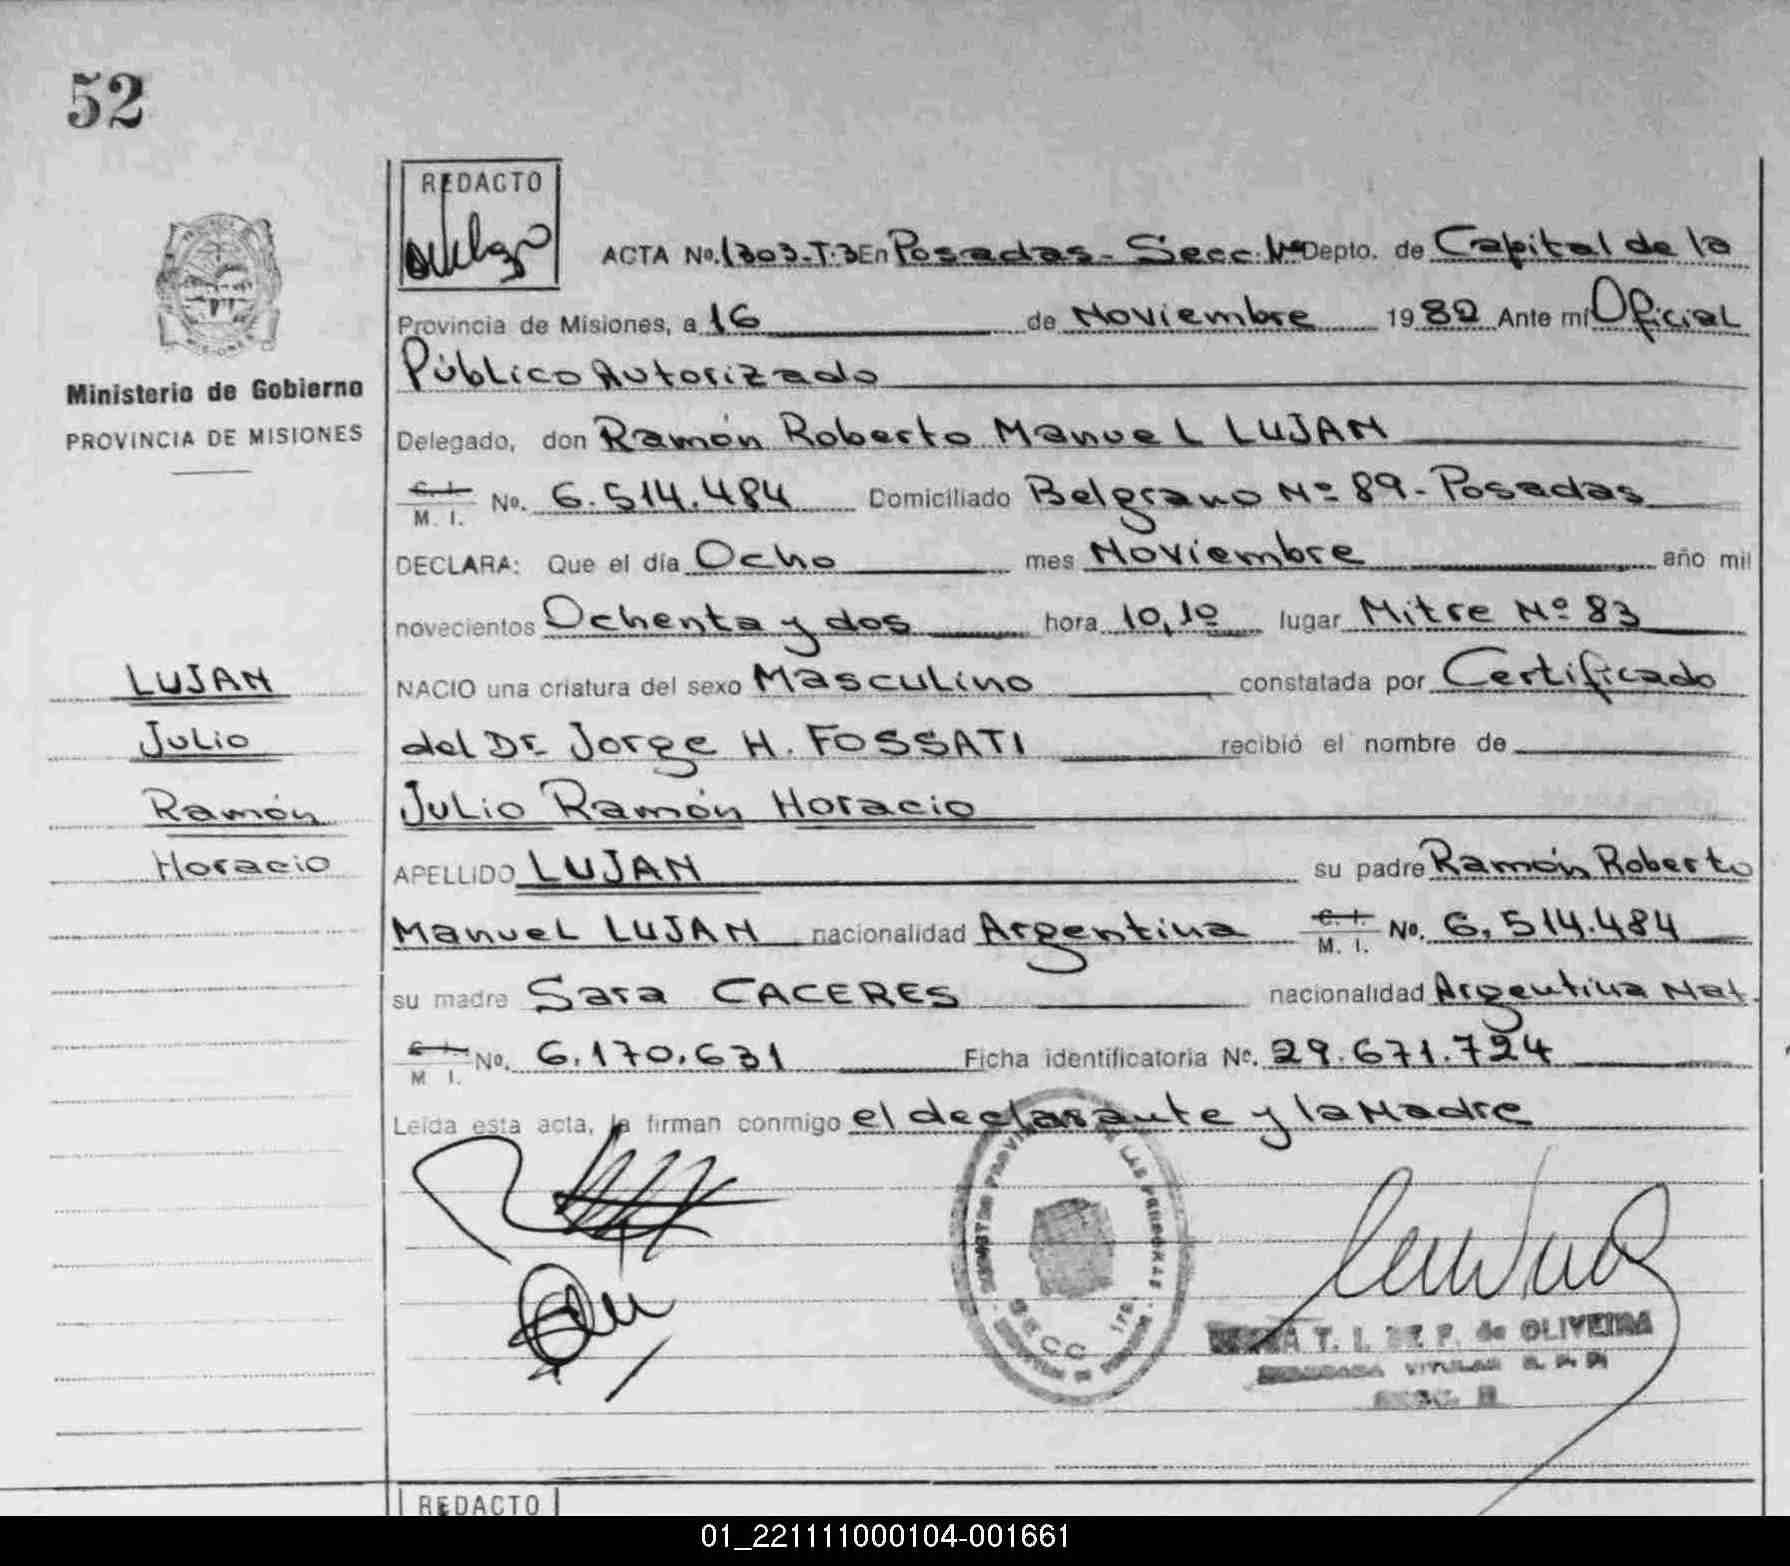 52
REDACTO
ACTA No. 1303-T.3 En Posadas - Secc. 1ra Depto. de Capital de la
Provincia de Misiones, a 16 de Noviembre 1982 Ante mí Oficial
Público Autorizado
Ministerio de Gobierno
PROVINCIA DE MISIONES
Delegado, don Ramón Roberto Manuel LUJAN
C. I. M. I. No. 6.514.484 Domiciliado Belgrano Nº 89 - Posadas
DECLARA: Que el día Ocho mes Noviembre año mil
novecientos Ochenta y dos hora 10,10 lugar Mitre Nº 83
LUJAN
Julio
Ramón
Horacio
NACIO una criatura del sexo Masculino constatada por Certificado
del Dr. Jorge H. FOSSATI recibió el nombre de
Julio Ramón Horacio
APELLIDO LUJAN su padre Ramón Roberto
Manuel LUJAN nacionalidad Argentina C. I. M. I. No. 6.514.484
su madre Sara CACERES nacionalidad Argentina Nat.
C. I. M. I. No. 6.170.631 Ficha identificatoria No. 29.671.724
Leída esta acta, la firman conmigo el declarante y la Madre
LAS PERSONAS
SECC
T. I. DE F. de OLIVEIRA
TITULAR R. P. P.
SECC.
REDACTO
01_221111000104-001661